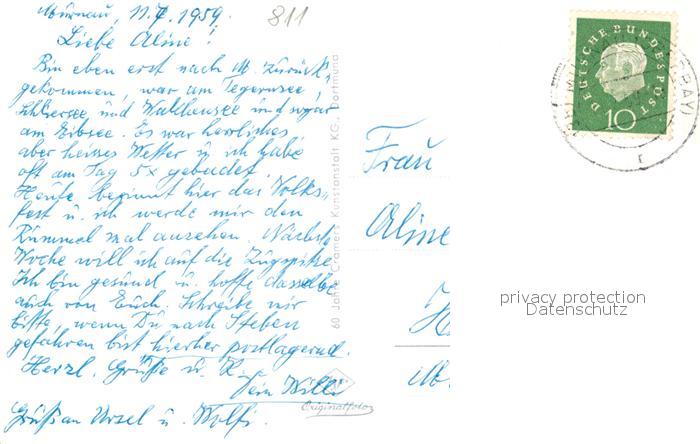 Murnau, 11.7.1959. 811
Liebe Aline!
Bin eben erst nach M. zurück-
gekommen, war am Tegernsee,
Schliersee und Walchensee und sogar
am Eibsee. Es war herrliches
aber heisses Wetter u. ich habe
oft am Tag 5x gebadet.
Heute beginnt hier das Volks-
fest u. ich werde mir den
Rummel mal ansehen. Nächste
Woche will ich auf die Zugspitze.
Ich bin gesund u. hoffe dasselbe
auch von Euch. Schreibe mir
bitte, wenn Du nach Steben
gefahren bist hierher postlagernd.
Herzl. Grüße u. K.
Dein Willi
Gruß an Ursel u. Wolfi.
60 Jahre Cramers Kunstanstalt KG., Dortmund
Originalfoto
Frau
Aline
DEUTSCHE BUNDESPOST
10
privacy protection
Datenschutz